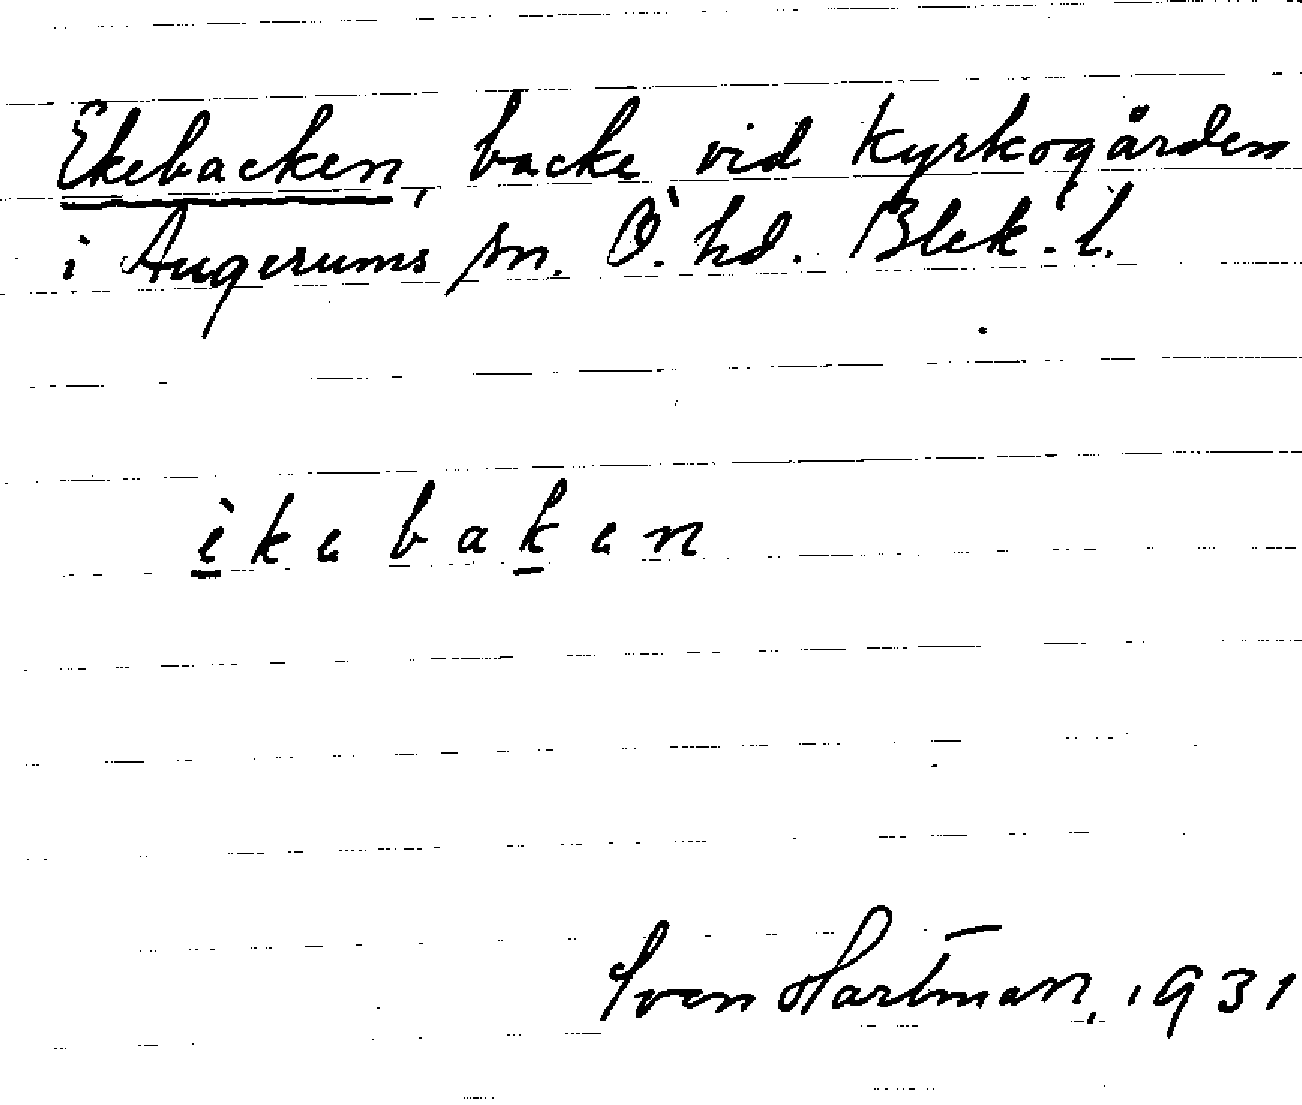 Ekebacken, backe vid Kyrkogården
i Augerums sn. Ö. hd. Blek. l.
èkebaken
Sven Hartman, 1931